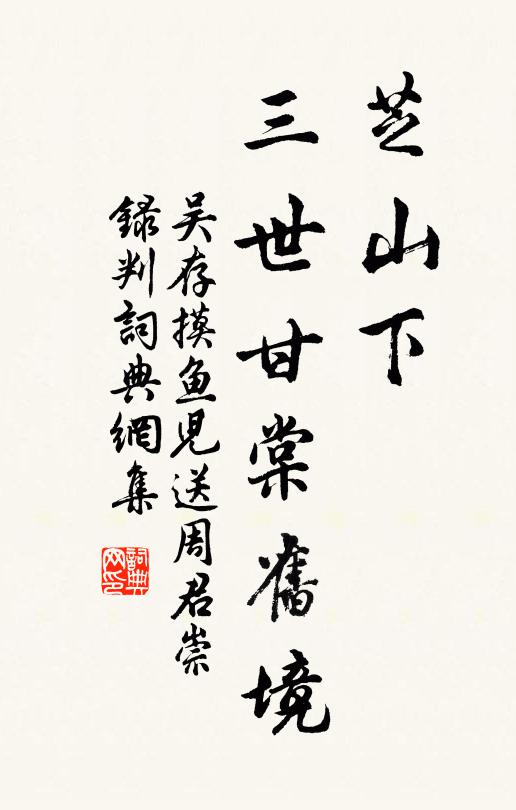 芝山下
三世甘棠舊境
吴存摸鱼児送周君崇
録判詞典網集
詞典网印